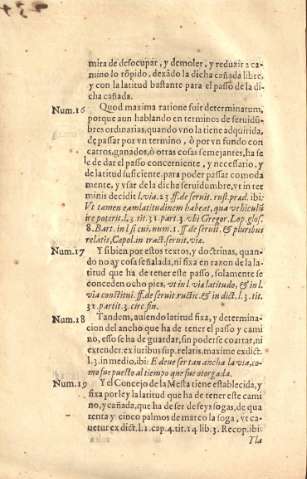 mira de desocupar, y demoler, y reduzir a ca-
mino lo rõpido, dexãdo la dicha cañada libre,
y con la latitud bastante para el passo de la di
cha cañada.
Num.16 Quod maxima ratione fuit determinatum,
porque aun hablando en terminos de seruidũ-
bres ordinarias, quando vno la tiene adquirida,
de passar por vn termino, ò por vn fundo con
carros, ganados, ò otras cosas semejantes, ha se
le de dar el passo concerniente, y necessario, y
de latitud suficiente, para poder passar comoda
mente, y vsar de la dicha seruidumbre, vt in ter
minis decidit l. via 23. ff. de seruit. rust. prad. ibi:
Vt tamen eam latitudinem habeat, qua vehiculũ
ire poterit. l. 3. tit. 31. part. 3. vbi Gregor. Lop. glos.
8. Bart. in l. si cui. num. 1. ff. de seruit. & pluribus
relatis, Cæpol. in tract. seruit. via.
Num.17 Y si bien por estos textos, y doctrinas, quan-
do no ay cosa señalada, ni fixa en razon de la lati
tud que ha de tener este passo, solamente se
conceden ocho pies, vt in l. via latitudo, & in l.
via constitui. ff. de seruit. rustic. & in dict. l. 3. tit.
31. partit. 3. circ. fin.
Num.18 Tandom, auiendo latitud fixa, y determina-
cion del ancho que ha de tener el passo y cami
no, esso se ha de guardar, sin poderse coartar, ni
extender ex iuribus sup. relatis, maxime ex dict.
l. 3. in medio, ibi: E deue ser tan ancha la via, co-
mo fue puesto al tiempo que fue otorgada.
Num.19 Y el Concejo de la Mesta tiene establecida, y
fixa por ley la latitud que ha de tener este cami
no, y cañada, que ha de ser de seys sogas, de qua
renta y cinco palmos de marco la soga, vt ca-
uetur ex dict. l. 1. cap. 4. tit. 14. lib. 3. Recop. ibi:
Tla